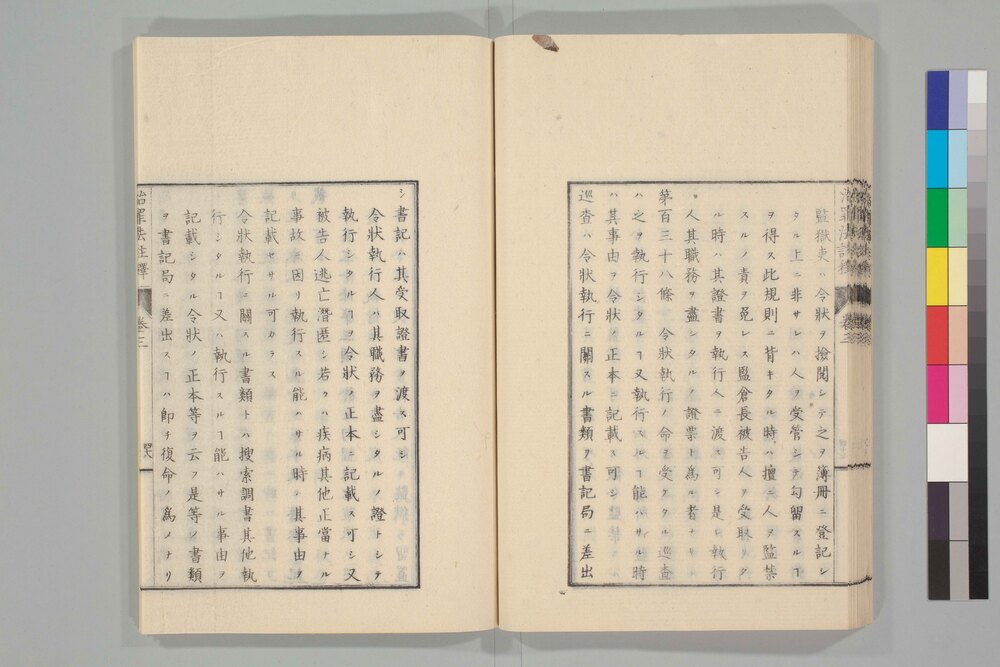 監獄吏ハ令状ヲ撿閲シテ之ヲ簿冊ニ登記シ
タル上ニ非サレハ人ヲ受管シテ勾留スルヿ
ヲ得ス此規則ニ背キタル時ハ擅ニ人ヲ監禁
スルノ責ヲ免レス監倉長被告人ヲ受取リタ
ル時ハ其證書ヲ執行人ニ渡ス可シ是レ執行
人其職務ヲ盡シタルノ證票ト為ル者ナリ
第百三十八條 令状執行ノ命ヲ受ケタル巡査
ハ之ヲ執行シタルヿ又執行スルヿ能ハサル時
ハ其事由ヲ令状ノ正本ニ記載ス可シ
巡査ハ令状執行ニ關スル書類ヲ書記局ニ差出
シ書記ハ其受取證書ヲ渡ス可シ
令状執行人ハ其職務ヲ盡シタルノ證トシテ
執行シタルヿヲ令状ノ正本ニ記載ス可シ又
被告人逃亡潜匿シ若クハ疾病其他正當ナル
事故ニ因リ執行スル能ハサル時ハ其事由ヲ
記載セサル可カラス
令状執行ニ關スル書類トハ搜索調書其他執
行シタルヿ又ハ執行スルヿ能ハサル事由ヲ
記載シタル令状ノ正本等ヲ云フ是等ノ書類
ヲ書記局ニ差出スヿハ即チ復命ノ為メナリ
治罪法註釋 卷三